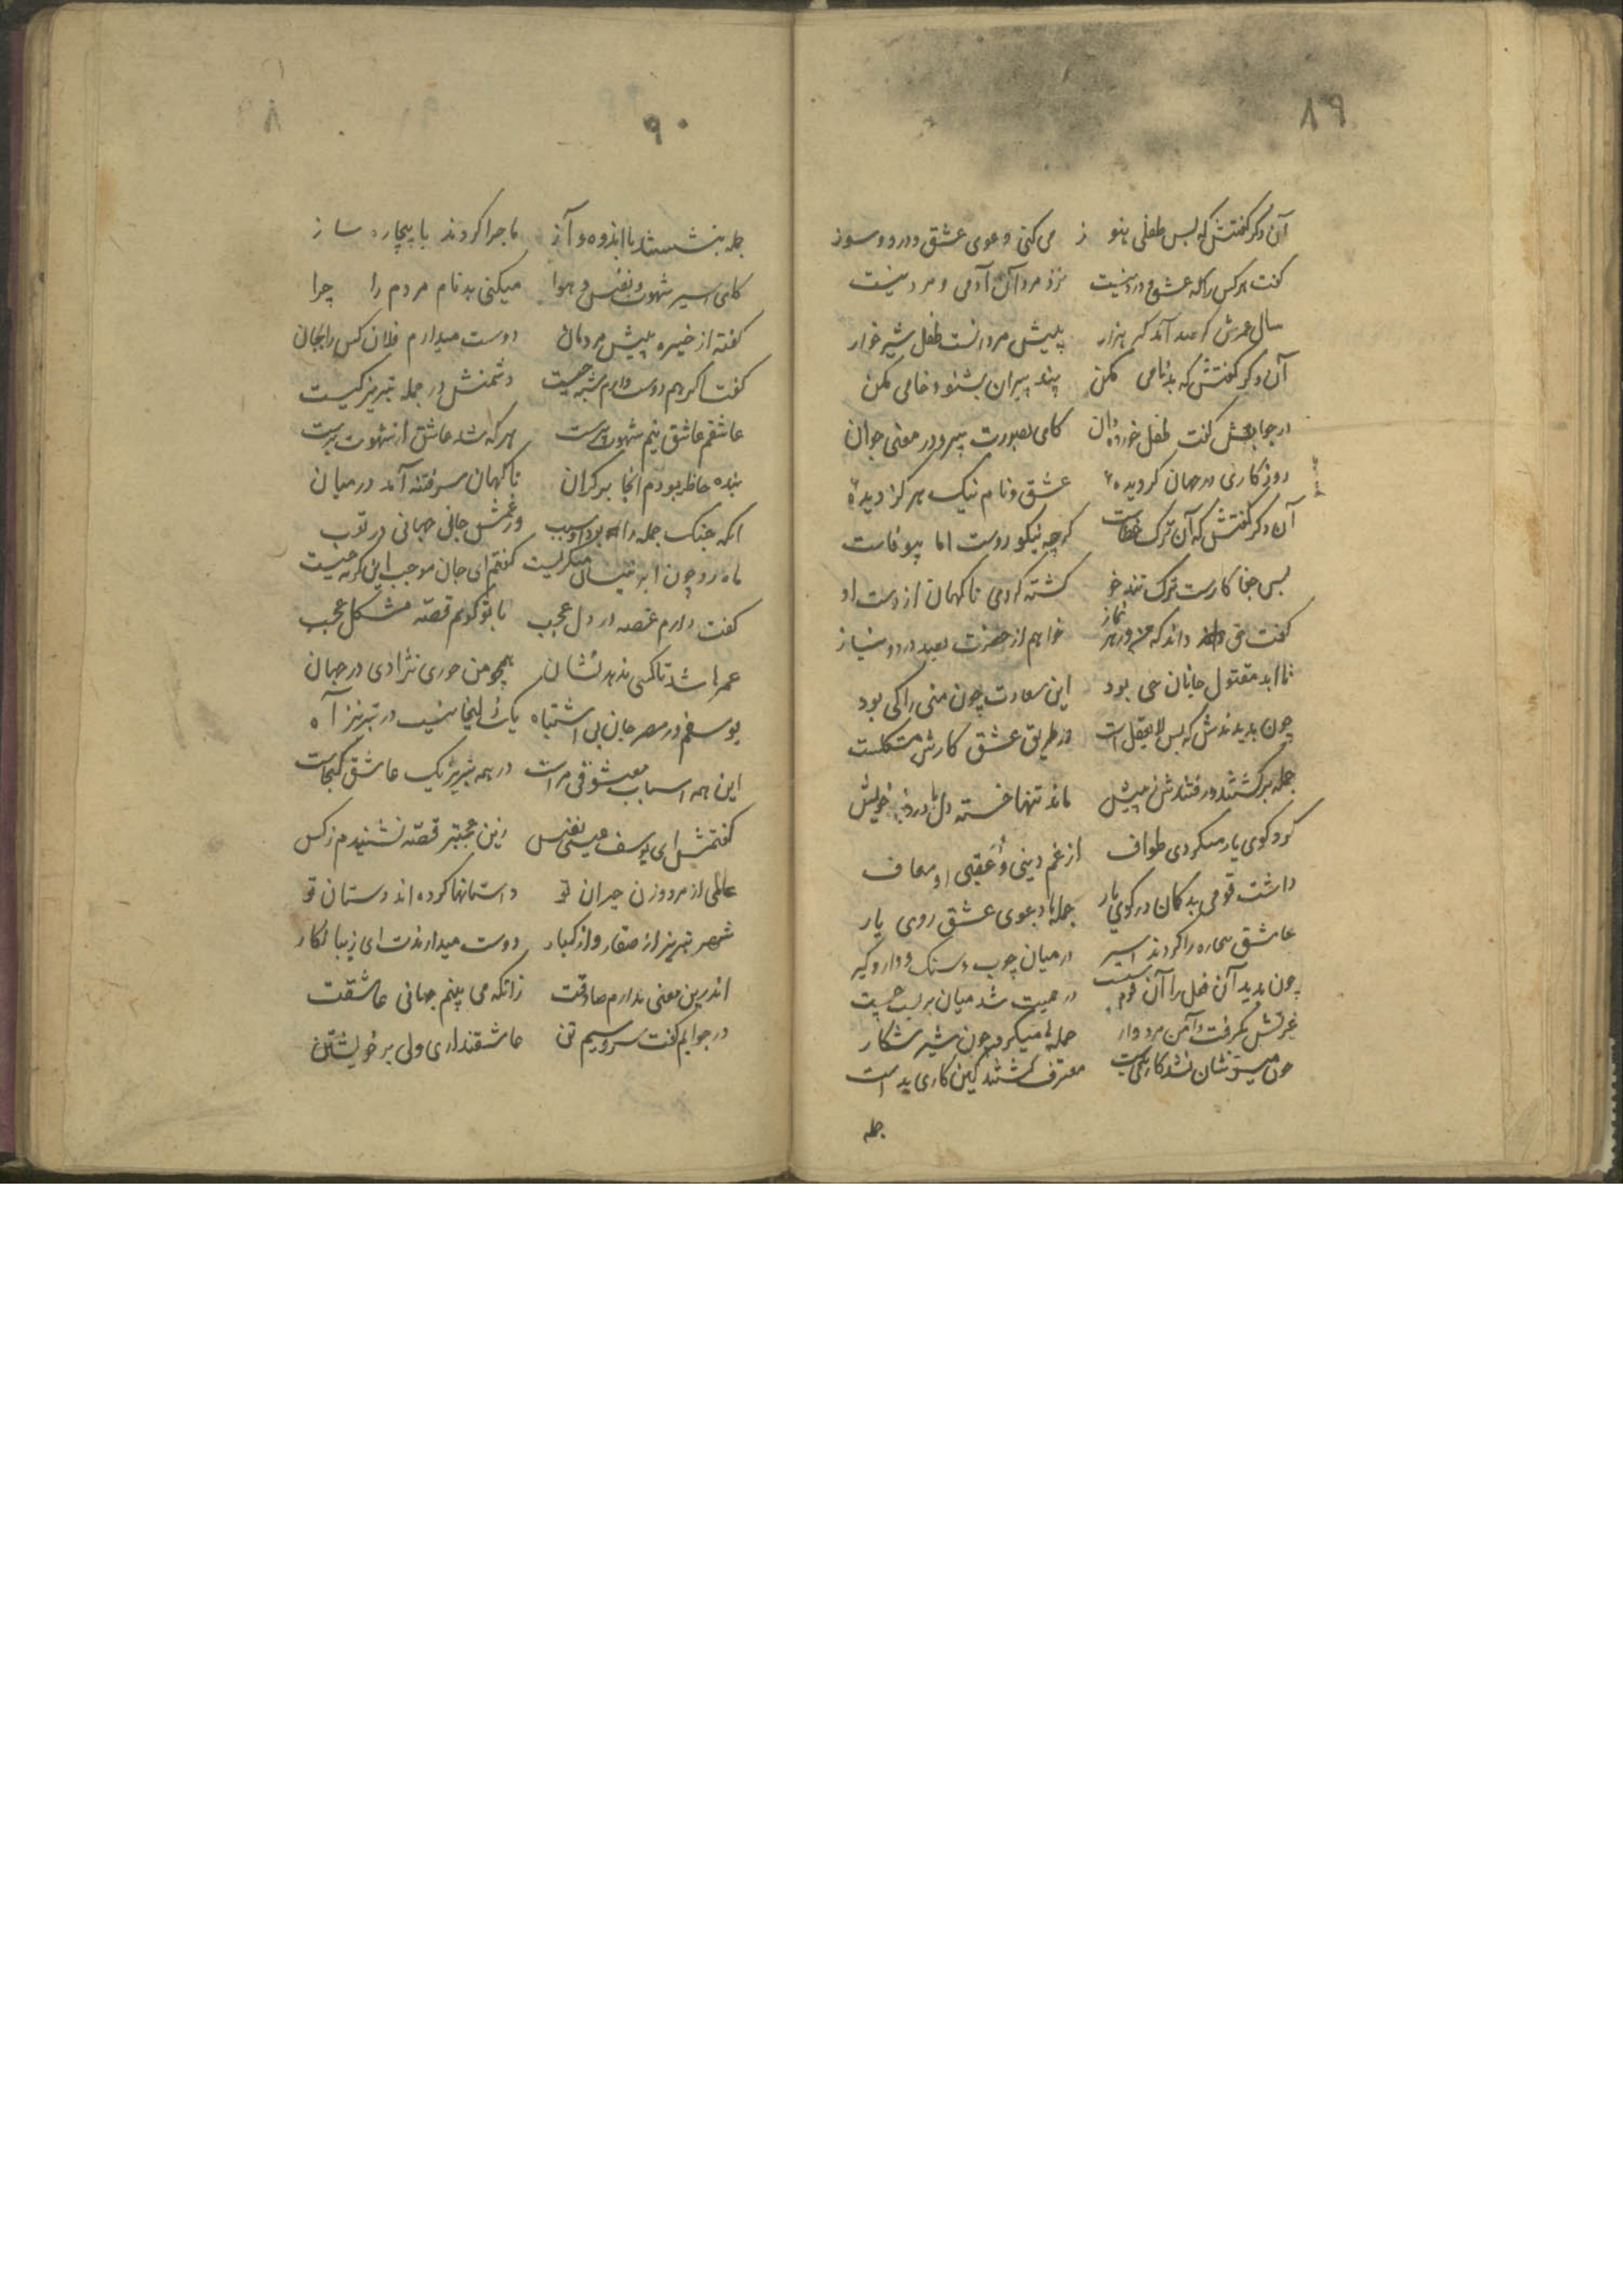 ۸۹
آن دکر کفتش که بس طفلی هنوز می کنی دعوی عشق و درد و سوز
کفت هر کس را که عشق و درد نیست نزد مردان آدمی و مرد نیست
سال عمرش کر صد آمد کر هزار پیش مردانست طفل شیر خوار
آن دکر کفتش که بدنامی مکن پند پیران بشنو و خامی مکن
در جوابش کفت طفل خورده دان کای بصورت پیر و در معنی جوان
روزکاری در جهان کردیدهٔ عشق و نام نیک هرکز دیدهٔ
آن دکر کفتش که آن ترک خطاست کرچه نیکو روست اما بیوفاست
بس جفا کارست ترک تند خو کشته کردی ناکهان از دست او
کفت حق داند که من در هر نماز خواهم از حضرت بصد درد و نیاز
تا ابد مقتول جانان حی بود این سعادت چون منی را کی بود
چون بدیدندش که بس لایعقل است در طریق عشق کارش مشکلست
جمله برکشتند و رفتندش ز پیش ماند تنها خسته دل با درد خویش
کرد کوی یار میکردی طواف از غم دینی و عقبی او معاف
داشت قومی بدکمان در کوی یار جمله با دعوی عشق روی یار
عاشق بیچاره را کردند اسیر در میان چوب و سنک و دار و کیر
چون بدید آن فعل را آن قوم سست در حمیت شد میان بر بست چست
غیرتش بکرفت دامن مرد وار حمله ها میکرد چون شیر شکار
چون میسرشان نشد کاری بدست معترف کشتند کین کاری بد است
جمله
۹۰
جمله بنشستند با اندوه و آز ماجرا کردند با بیچاره ساز
کای اسیر شهوت و نفس و هوا میکنی بدنام مردم را چرا
کفته از خیره پیش مردمان دوست میدارم فلان کس را بجان
کفت اکر هم دوست دارم شبه چیست دشمنش در جمله تبریز کیست
عاشقم عاشق نیم شهوت پرست هر که شد عاشق از شهوت برست
بنده حاظر بودم آنجا بر کران ناکهان سر فتنه آمد در میان
آنکه جنک جمله را بود او سبب وز غمش جانی جهانی در تعب
ماه رو چون ابر نیسان میکریست کفتم ای جان موجب این کریه چیست
کفت دارم غصه در دل عجب با تو کویم قصهٔ مشکل عجب
عمرها شد تا کسی ندهد نشان همچو من حوری نژادی در جهان
یوسفم در مصر جان بی اشتباه یک زلیخا نیست در تبریز آه
این همه اسباب معشوقی مراست در همه تبریز یک عاشق کجاست
کفتمش ای یوسف عیسی نفس زین عجبتر قصه نشنیدم ز کس
عالمی از مرد و زن حیران تو داستانها کرده اند دستان تو
شهر تبریز از صغار و از کبار دوست میدارندت ای زیبا نکار
اندرین معنی ندارم صادقت زانکه می بینم جهانی عاشقت
در جوابم کفت سرو سیم تن عاشقند اری ولی بر خویشتن